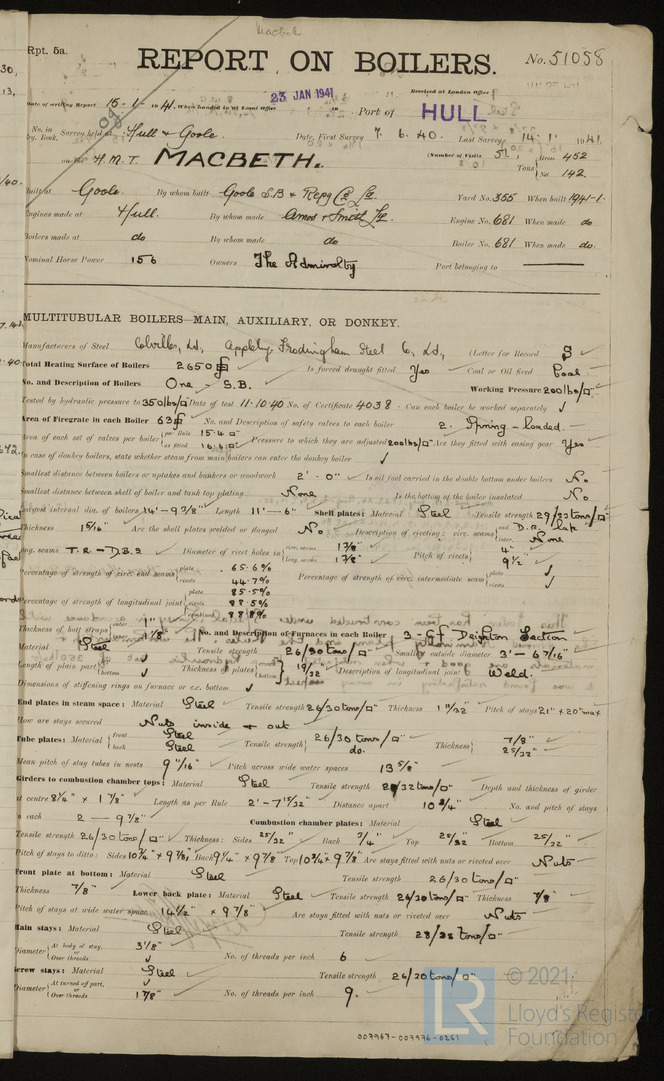 Macbeth
Rpt. 5a.
REPORT ON BOILERS.
No. 51058
Received at London Office
Date of writing Report 15-1- 1941. When handed in at Local Office 23 JAN 1941 19 Port of HULL
No. in Survey held at Hull & Goole Date, First Survey 7. 6. 40. Last Survey 14. 1. 1941.
Reg. Book.
(Number of Visits 51.) Gross 452
on the H.M.T. MACBETH. Tons
Net 142
Built at Goole. By whom built Goole S.B & Repg Co Ltd. Yard No. 355 When built 1941-1.
Engines made at Hull. By whom made Amos & Smith Ltd. Engine No. 681 When made do
Boilers made at do By whom made do Boiler No. 681 When made do.
Nominal Horse Power 156 Owners The Admiralty Port belonging to
MULTITUBULAR BOILERS MAIN, AUXILIARY, OR DONKEY.
Manufacturers of Steel Colvilles, Ld, Appleby-Frodingham Steel Co, Ld, (Letter for Record S
Total Heating Surface of Boilers 2650 Is forced draught fitted Yes Coal or Oil fired Coal
No. and Description of Boilers One - S.B. Working Pressure 200 lbs/□"
Tested by hydraulic pressure to 350 lbs/□" Date of test 11.10.40 No. of Certificate 4038. Can each boiler be worked separately ✓
Area of Firegrate in each Boiler 63 No. and Description of safety valves to each boiler 2. Spring-loaded.
Area of each set of valves per boiler per Rule 15.4 □" as fitted 16.6 □" Pressure to which they are adjusted 200 lbs/□" Are they fitted with easing gear Yes
In case of donkey boilers, state whether steam from main boilers can enter the donkey boiler ✓
Smallest distance between boilers or uptakes and bunkers or woodwork 2'-0" Is oil fuel carried in the double bottom under boilers No
Smallest distance between shell of boiler and tank top plating None Is the bottom of the boiler insulated No
Largest internal dia. of boilers 14'-9 3/8" Length 11'-6" Shell plates: Material Steel Tensile strength 29/33 tons/□"
Thickness 1 5/16" Are the shell plates welded or flanged No Description of riveting: circ. seams end D.R. lap inter. None
long. seams T.R.-D.B.S Diameter of rivet holes in circ. seams 1 3/8" long. seams 1 3/8" Pitch of rivets 4" 9 1/2"
Percentage of strength of circ. end seams plate 65.6% rivets 44.7% Percentage of strength of circ. intermediate seam plate rivets ✓
Percentage of strength of longitudinal joint plate 85.5% rivets 88.5% combined 88.8%
Thickness of butt straps outer 1" inner 1 1/8" No. and Description of Furnaces in each Boiler 3 - Cf Deighton Section
Material Steel Tensile strength 26/30 tons/□" Smallest outside diameter 3'-6 7/16"
Length of plain part top bottom ✓ Thickness of plates 19/32" Description of longitudinal joint Weld.
Dimensions of stiffening rings on furnace or c.c. bottom ✓
End plates in steam space: Material Steel Tensile strength 26/30 tons/□" Thickness 1 11/32" Pitch of stays 21" x 20" max
How are stays secured Nuts inside & out
Tube plates: Material front Steel back Steel Tensile strength 26/30 tons/□" do. Thickness 7/8" 25/32"
Mean pitch of stay tubes in nests 9 11/16" Pitch across wide water spaces 13 5/8"
Girders to combustion chamber tops: Material Steel Tensile strength 28/32 tons/□" Depth and thickness of girder
at centre 8 1/4" x 1 7/8" Length as per Rule 2'-7 11/32" Distance apart 10 3/4" No. and pitch of stays
in each 2 - 9 7/8" Combustion chamber plates: Material Steel
Tensile strength 26/30 tons/□" Thickness: Sides 25/32 Back 3/4" Top 25/32 Bottom 25/32"
Pitch of stays to ditto: Sides 10 3/4" x 9 7/8" Back 9 1/4" x 9 7/8" Top 10 3/4" x 9 7/8" Are stays fitted with nuts or riveted over Nuts
Front plate at bottom: Material Steel Tensile strength 26/30 tons/□"
Thickness 7/8" Lower back plate: Material Steel Tensile strength 26/30 tons/□" Thickness 7/8"
Pitch of stays at wide water space 14 1/2" x 9 7/8" Are stays fitted with nuts or riveted over Nuts
Main stays: Material Steel Tensile strength 28/32 tons/□"
Diameter At body of stay, or Over threads 3 1/8" No. of threads per inch 6
Screw stays: Material Steel Tensile strength 26/30 tons/□"
Diameter At turned off part, or Over threads 1 7/8" No. of threads per inch 9.
© 2021
LR
Lloyd's Register
Foundation
007967-007976-0261